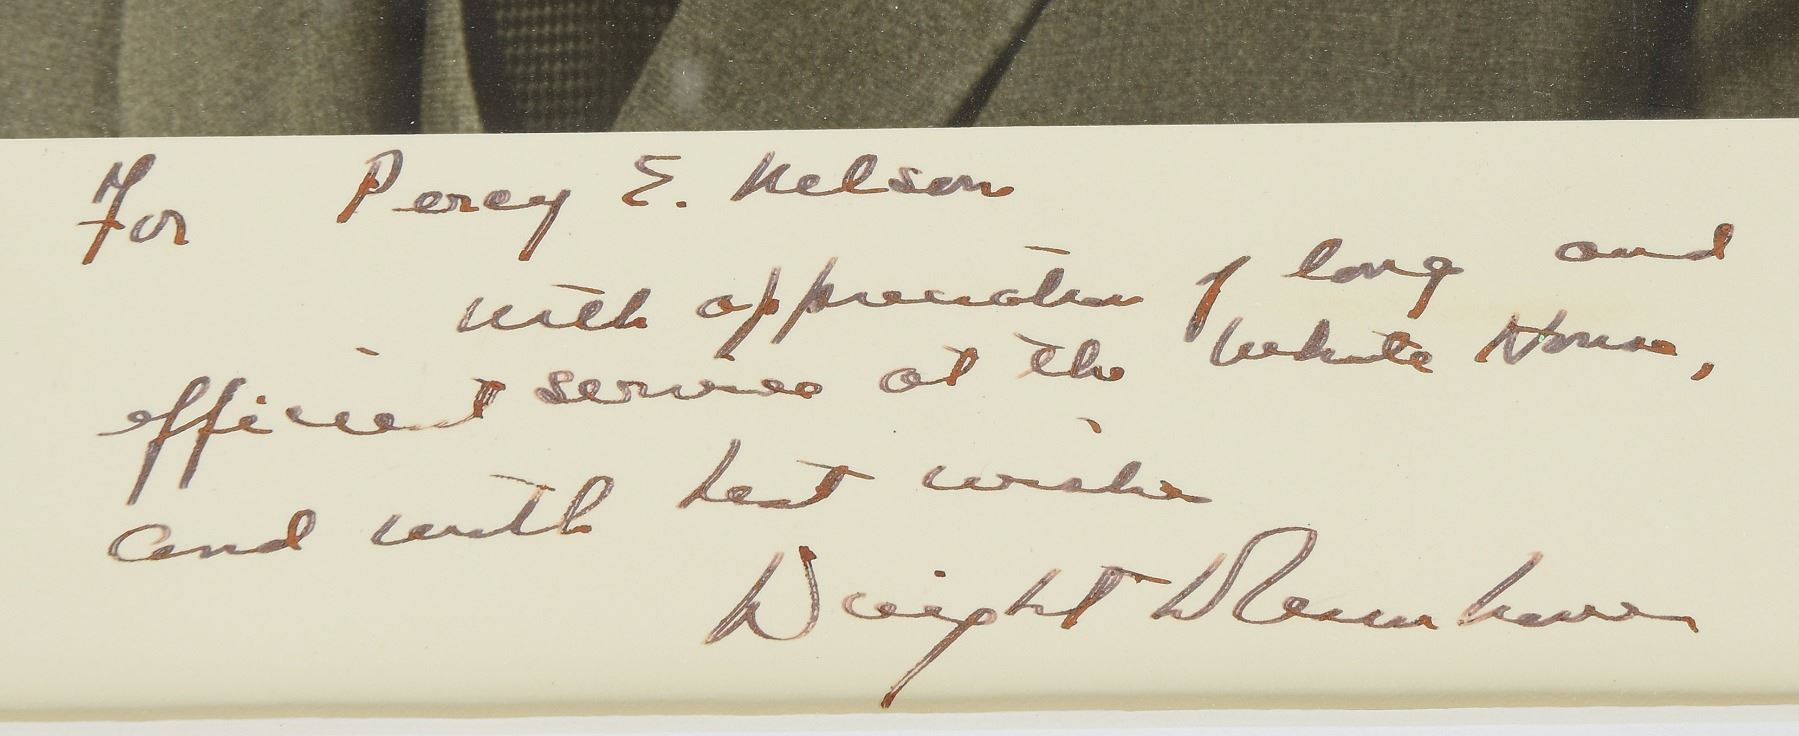 For Percy E. Nelson
with appreciation of long and
efficient service at the White House,
and with best wishes
Dwight D Eisenhower